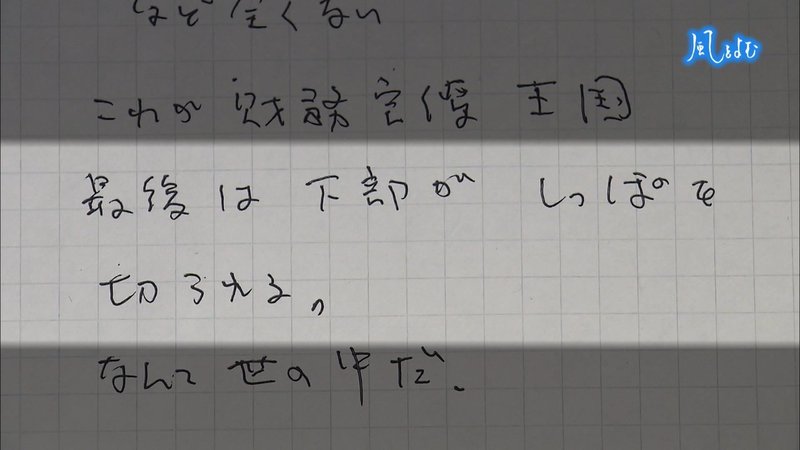 など全くない
風をよむ
これが財務官僚王国
最後は下部がしっぽを
切られる。
なんて世の中だ、